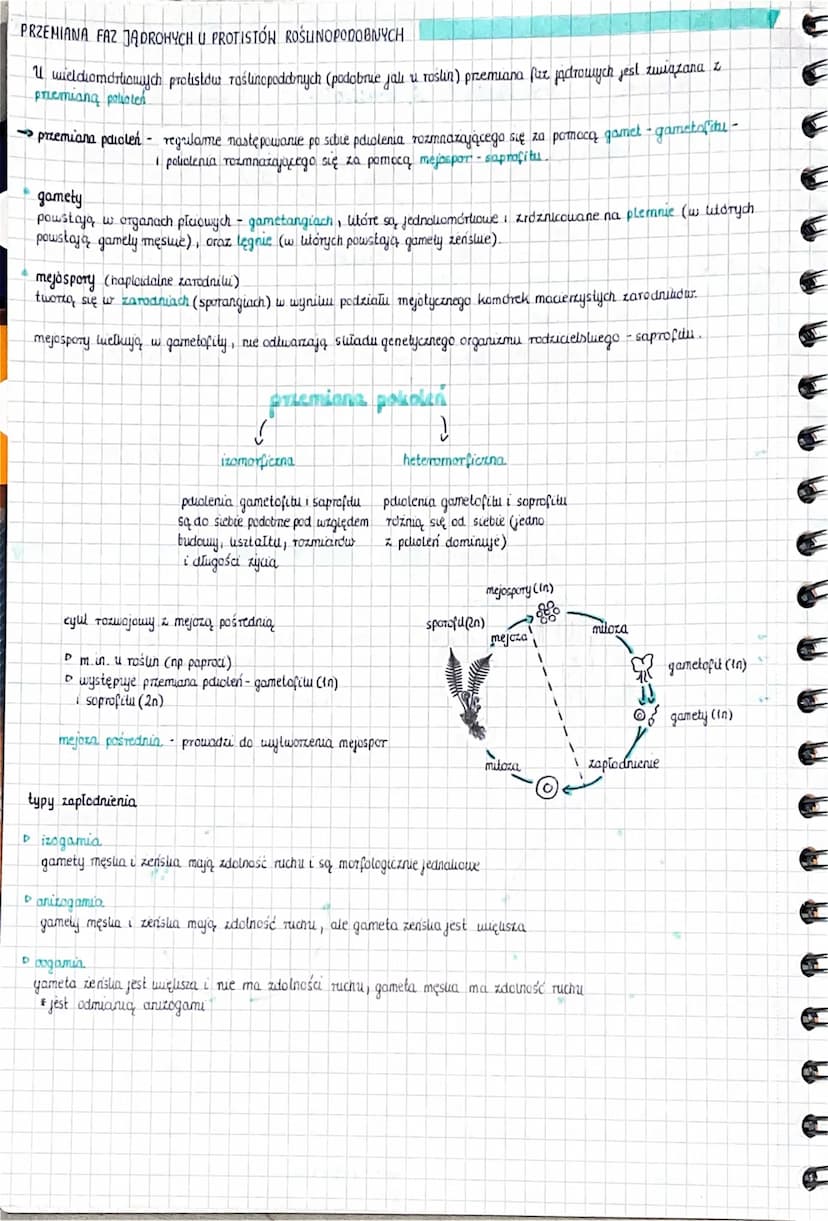 PRZEMIANA FAZ JĄDROWYCH U PROTISTÓW ROŚLINOPODOBNYCH
U wielokomórkowych protistów roślinopodobnych (podobnie jak u roślin) przemiana faz jądrowych jest związana z
przemianą pokoleń
→ przemiana pokoleń - regularne następowanie po sobie pokolenia rozmnażającego się za pomocą gamet - gametofitu -
i pokolenia rozmnażającego się za pomocą mejospor - saprofitu.
• gamety
powstają w organach płciowych - gametangiach, które są jednokomórkowe i zróżnicowane na plemnie (w których
powstają gamety męskie), oraz lęgnie (w których powstają gamety żeńskie).
• mejospory (haploidalne zarodniki)
tworzą się w zarodniach (sporangiach) w wyniku podziału mejotycznego komórek macierzystych zarodników.
mejospory kiełkują w gametofity, nie odtwarzają składu genetycznego organizmu rodzicielskiego - saprofitu.
przemiana pokoleń
izomorficzna heteromorficzna
pokolenia gametofitu i saprofitu pokolenia gametofitu i soprofitu
są do siebie podobne pod względem różnią się od siebie (jedno
budowy, kształtu, rozmiarów z pokoleń dominuje)
i długości życia
mejospory (1n)
cykl rozwojowy z mejozą pośrednią
sporofit (2n)
mejoza
mitoza
▷ m.in. u roślin (np paproci)
gametofit (1n)
▷ występuje przemiana pokoleń - gametofitu (1n)
i soprofitu (2n)
gamety (1n)
mejoza pośrednia - prowadzi do wytworzenia mejospor
mitoza
zapłodnienie
typy zapłodnienia
▷ izogamia
gamety męska i żeńska mają zdolność ruchu i są morfologicznie jednakowe
▷ anizogamia
gamety męska i żeńska mają zdolność ruchu, ale gameta żeńska jest większa
▷ oogamia
gameta żeńska jest większa i nie ma zdolności ruchu, gameta męska ma zdolność ruchu
* jest odmianą anizogami